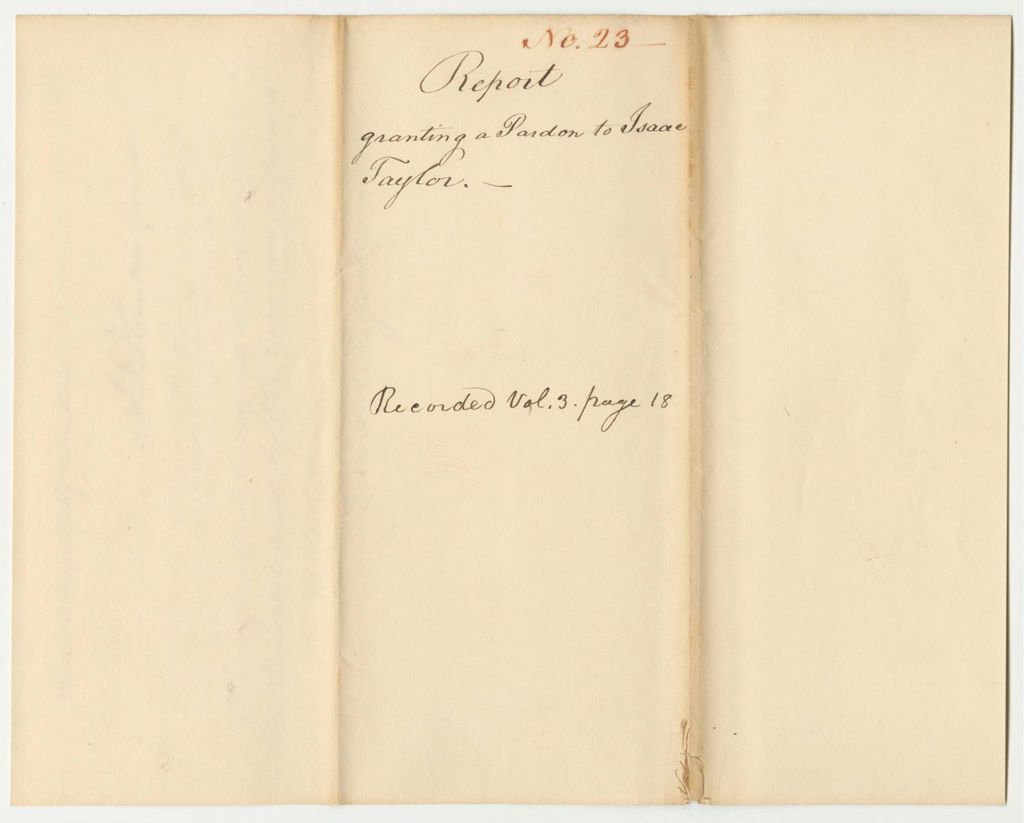 No. 23 —
Report
granting a Pardon to Isaac
Taylor. —
Recorded Vol. 3. page 18